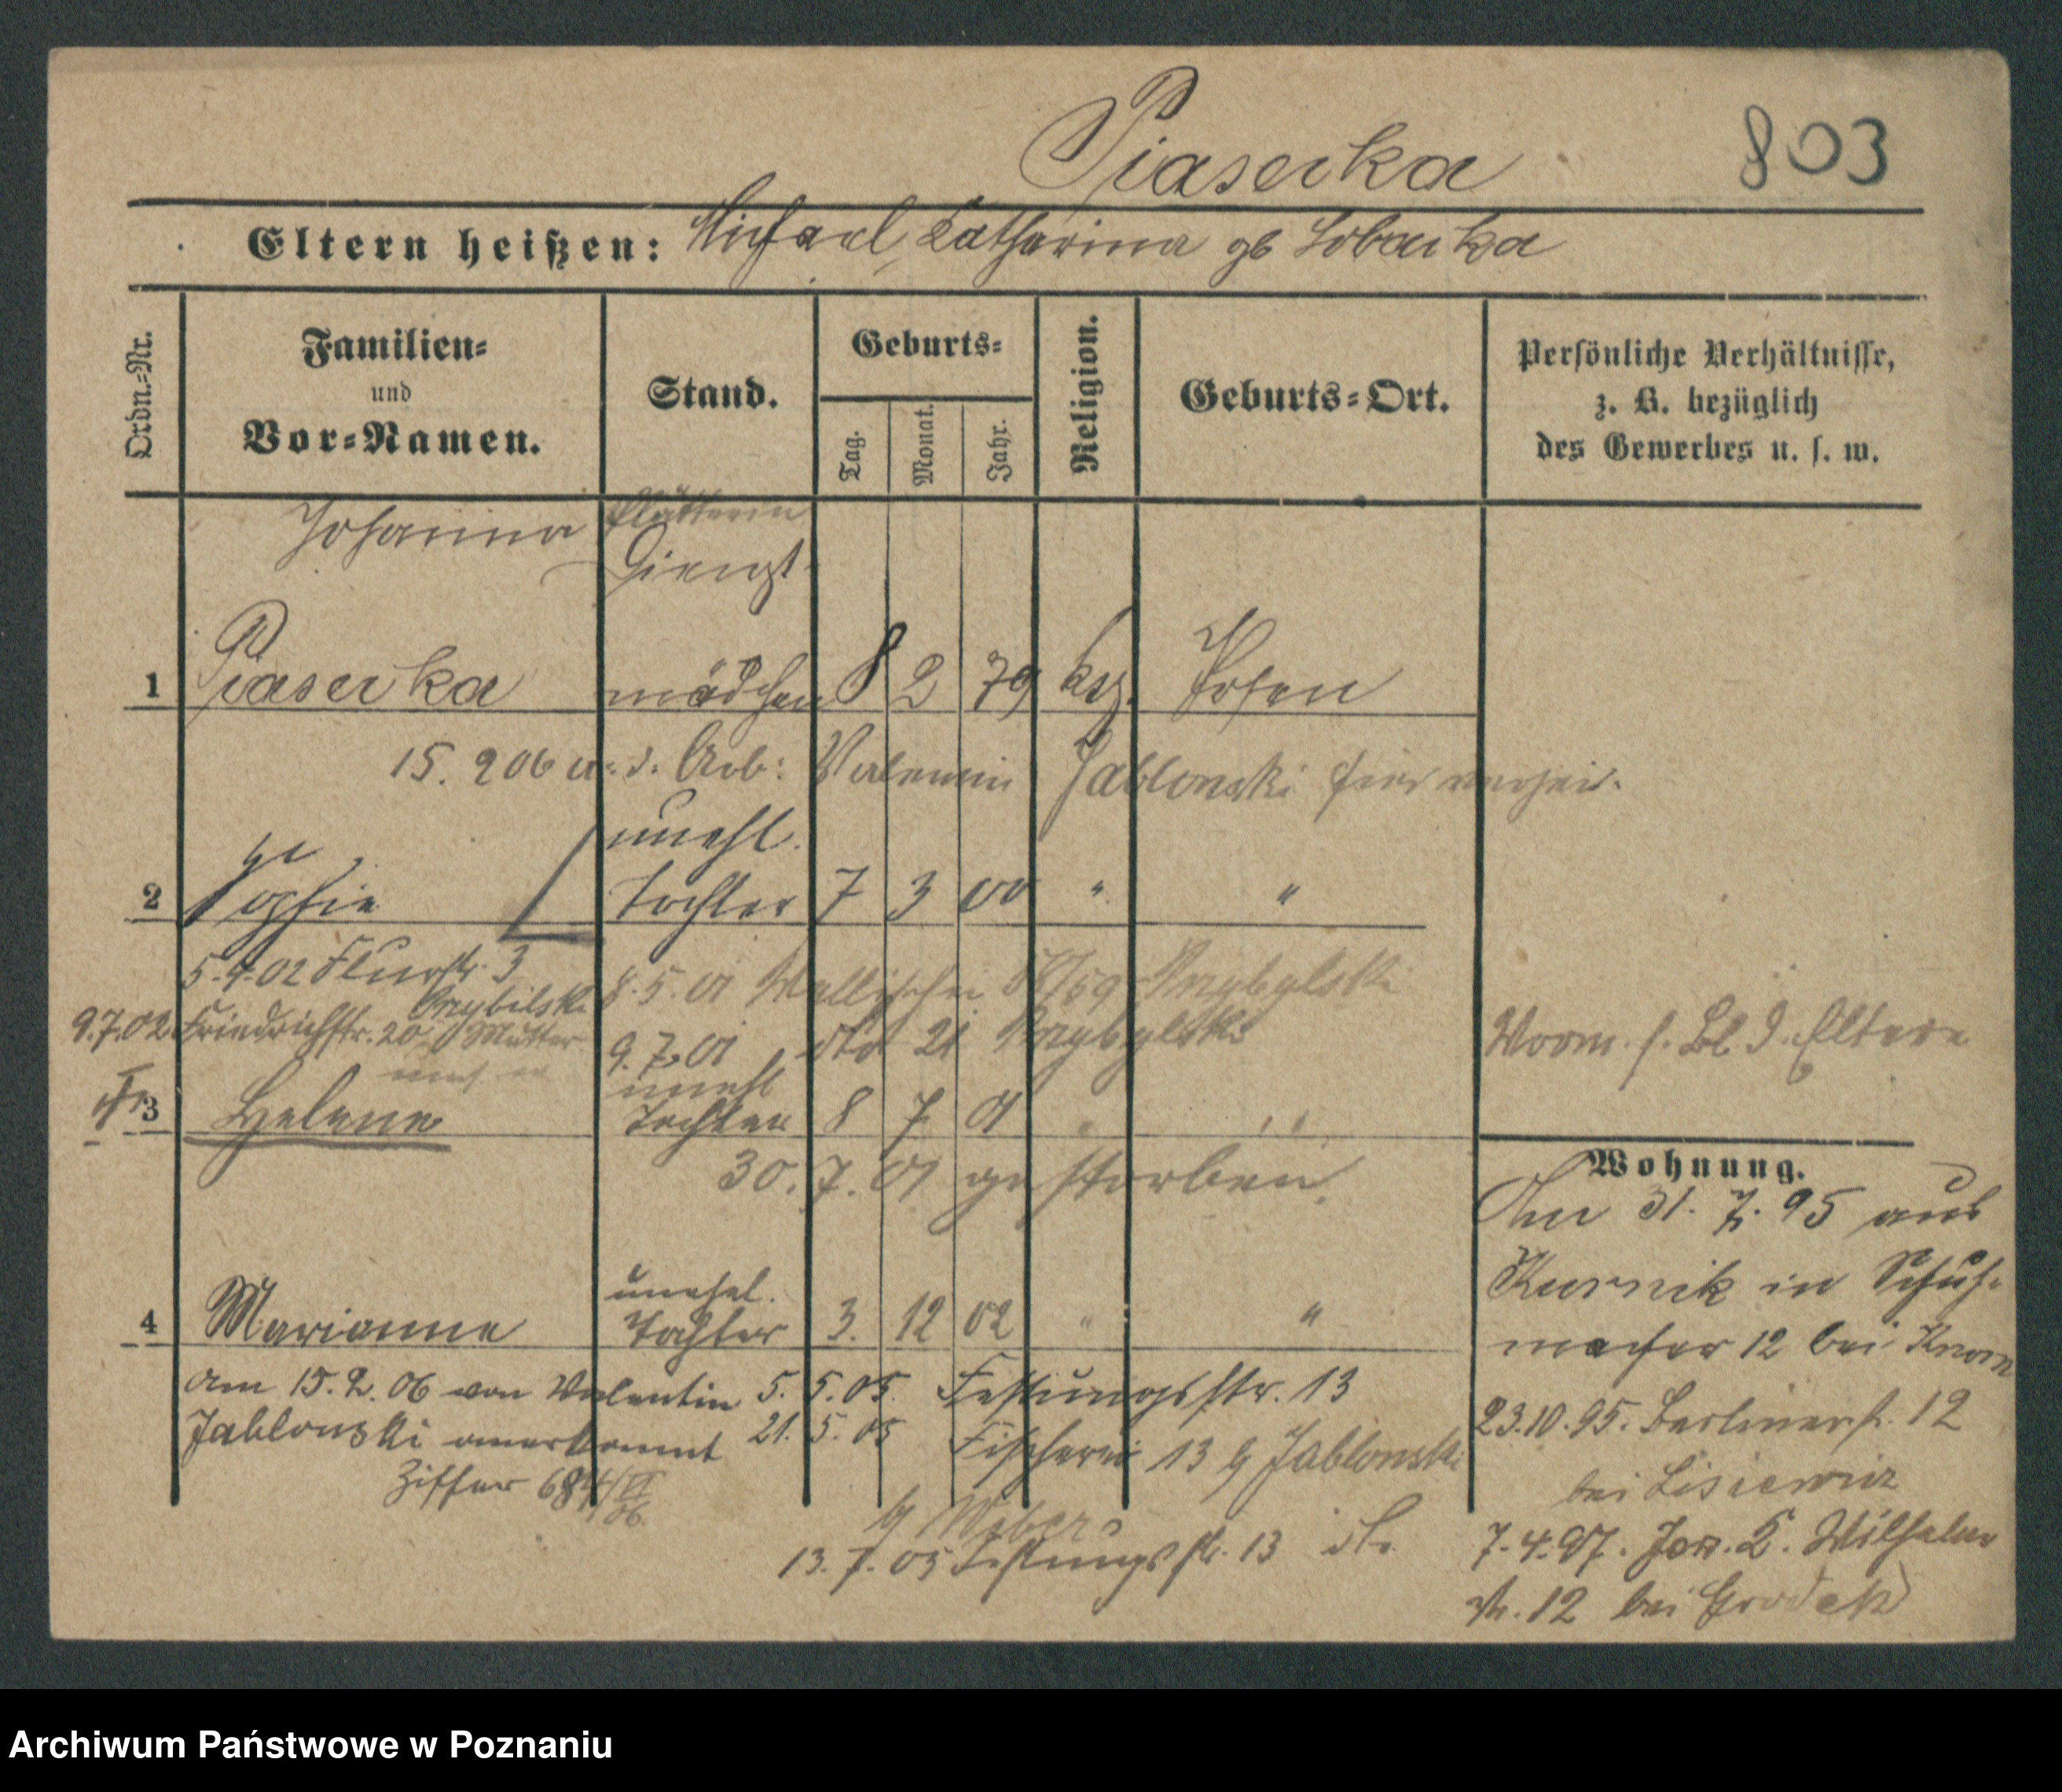 Piasecka 803
Eltern heißen: Michael, Katharina gb
Ordn.=Nr.
Familien=
und
Vor=Namen.
Stand.
Geburts=
Tag.
Monat.
Jahr.
Religion.
Geburts=Ort.
Persönliche Verhältnisse,
z. B. bezüglich
des Gewerbes u. s. w.
Johanna Plätterin
Dienst
1 Piasecka mädchen 8 2 79 Posen
15. 2 06 m. d. Arb: Valentin Jablonski hier verheir.
unehl.
2 Sophie Tochter 7 3 00 " "
5.4.02 Flurstr. 3 8.5.01 Wallischei Przybylski
Przybilski
9.7.02 Friedrichstr. 20 Mutter 9.7.01 dto 21 Przybylski
unehl
3 Helene Tochter 8 7 01 " "
30. 7. 01 gestorben.
unehel.
4 Marianne Tochter 3. 12 02 " "
Am 15. 2. 06 von Valentin 5. 5. 05. Festungsstr. 13
Jablonski anerkannt 21. 5. 05 Fischerei 13 b/ Jablonski
Ziffer 684/VI
06
b/ Weber
13. 7. 05 Festungsstr. 13
Vorm. s. Bl. d. Eltern
Wohnung.
31. 7. 95 aus
Kurnik in Schuh=
macher 12 bei
23.10.95. Berlinerstr. 12
bei Lisiewicz
7.4.97. Wilhelm
str. 12 bei Grodek
Archiwum Państwowe w Poznaniu